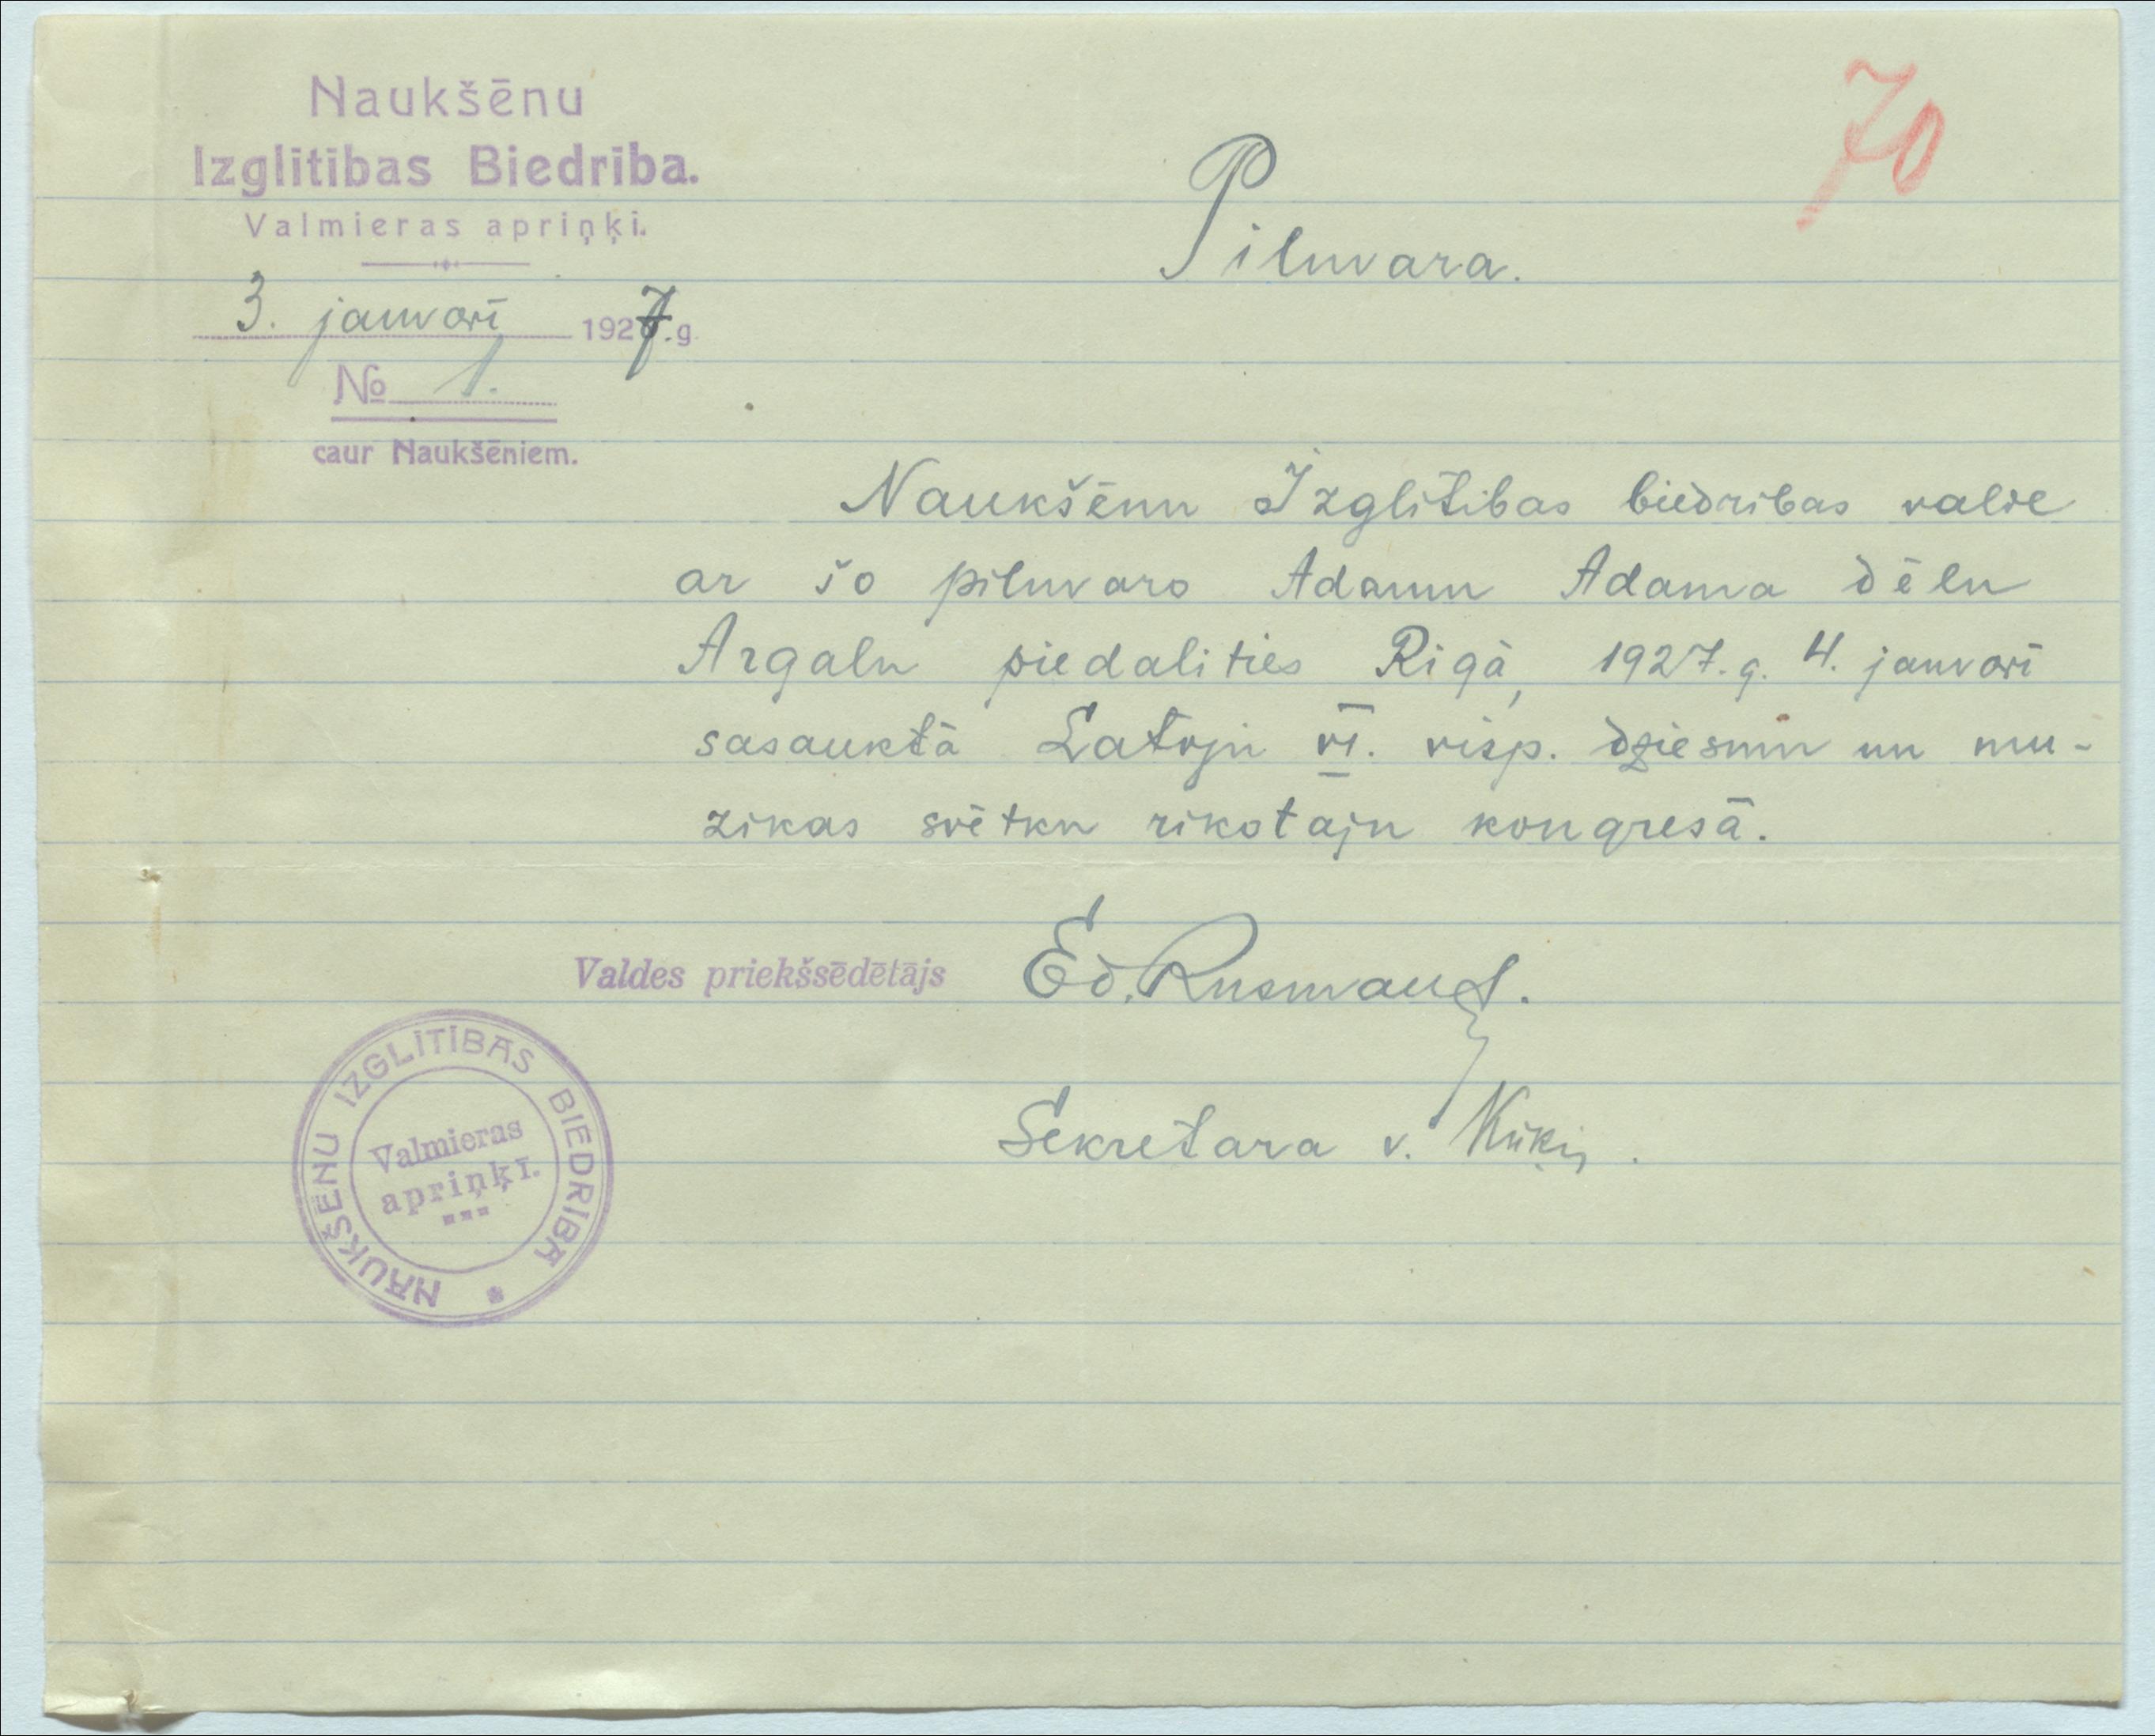 70
Naukšēnu
Izglītības Biedrība.
Valmieras apriņķi.
3. janvarī 1927.g.
No 1.
caur Naukšēniem.
Pilnvara.
Naukšēnu Izglītibas biedribas valde
ar šo pilnvaro Adamu Adama dēlu
Argalu piedalities Rigā, 1927. g. 4. janvarī
sasauktā Latvju VI. visp. dziesmu un mu-
zikas svētku rikotaju kongresā.
Valdes priekšsēdētājs Ed. Rusmanis.
Sekretara v. Kūķis.
NAUKŠĒNU IZGLĪTĪBAS BIEDRĪBA
Valmieras
apriņķī.